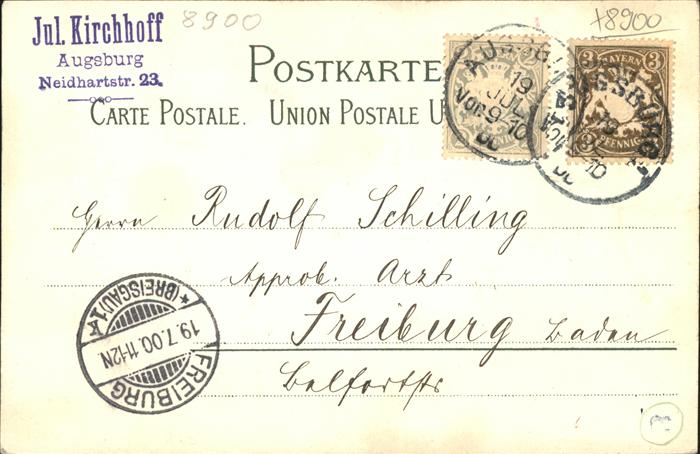 8900
+8900
Jul. Kirchhoff
Augsburg
Neidhartstr. 23.
POSTKARTE
CARTE POSTALE. UNION POSTALE U
AUGSB
19
JUL
Vor. 9-10
00
3 BAYERN 3
PFENNIG
AUGSBURG
19
00
Herrn Rudolf Schilling
Approb. Arzt
Freiburg Baden
Belfortstr
FREIBURG
* (BREISGAU) 1 K
19.7.00.11-12N